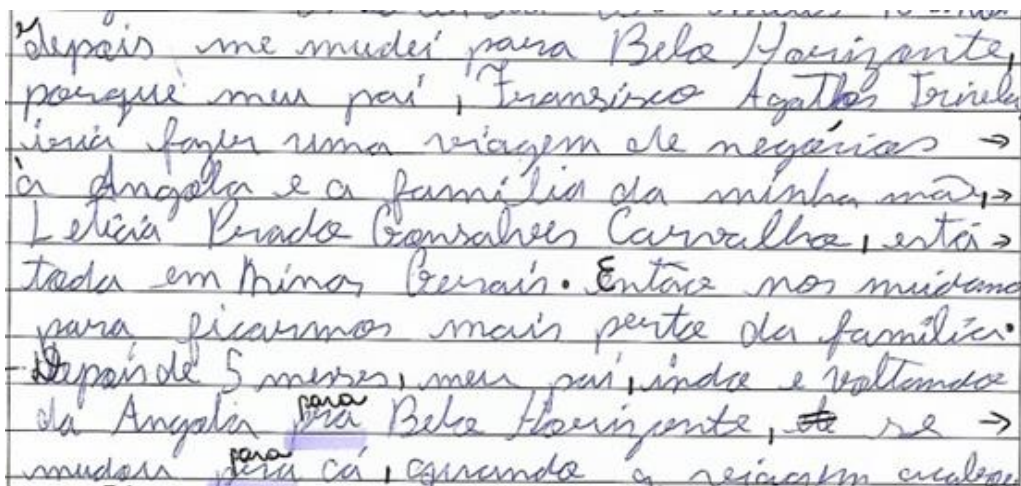 depois me mudei para Belo Horizonte,
porque meu pai, Fransisco Agathos Trivela
iria fazer uma viagem de negócios →
à Angola e a família da minha mãe, →
Letícia Prado Gonsalves Carvalho, está →
toda em Minas Gerais. Então nos mudamo
para ficarmos mais perto da família.
- Depois de 5 meses, meu pai, indo e voltando
da Angola para pra Belo Horizonte, se →
mudou para pra cá, quando a viagem acabou